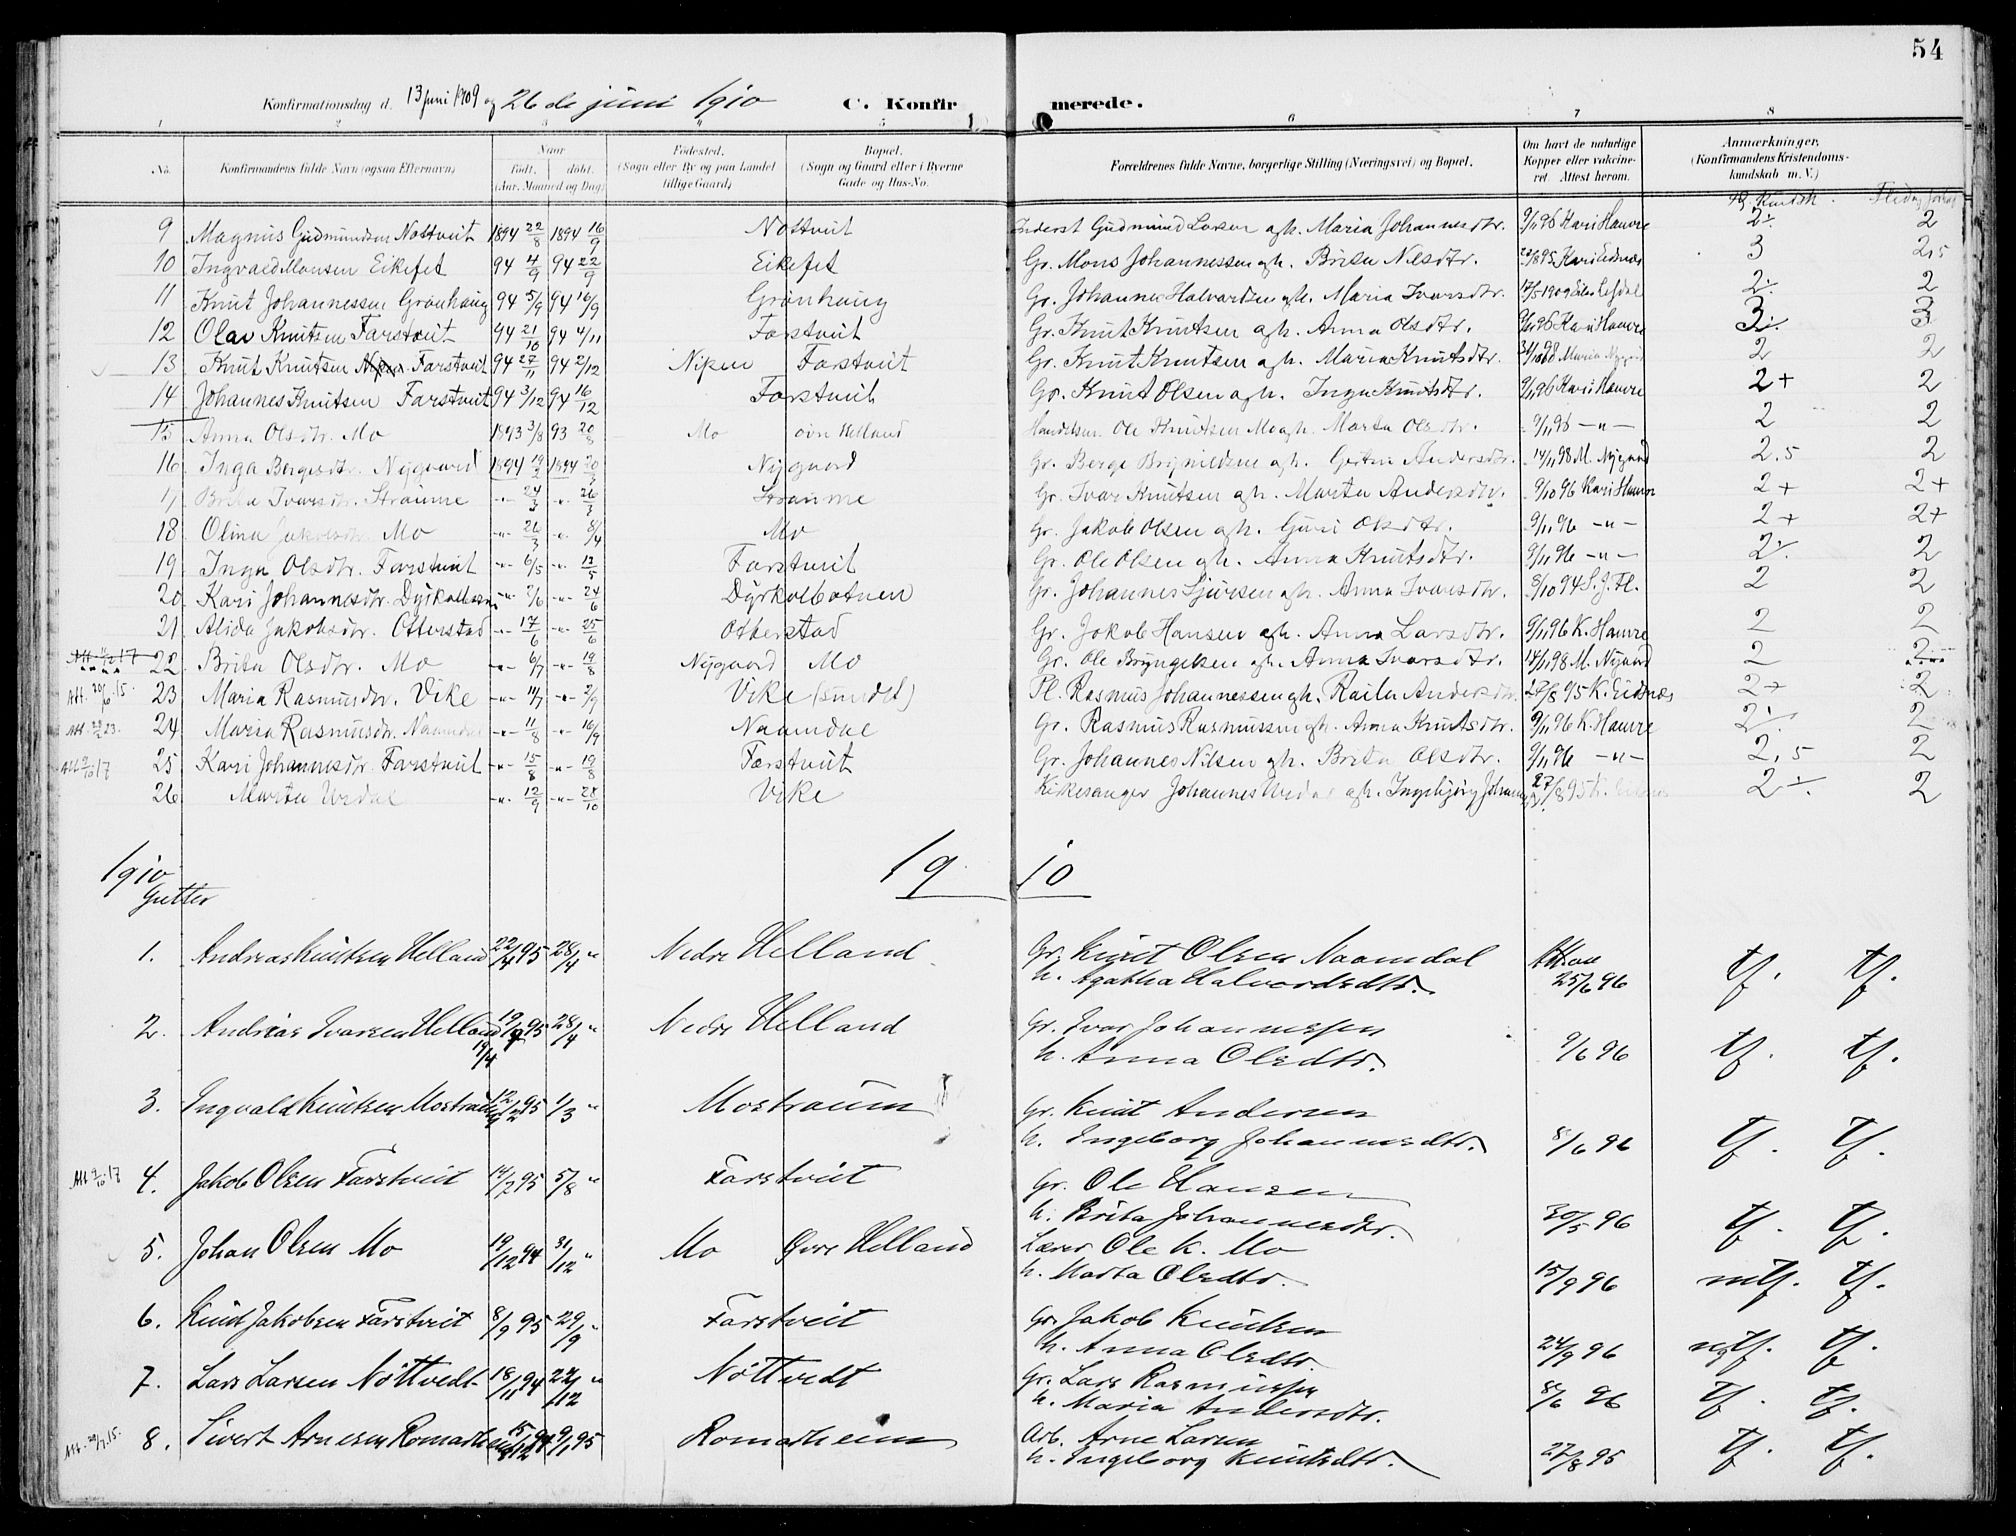 54
Konfirmationsdag d. 13 juni 1909 og 26 de juni 1910 C. Konfirmerede.
1 2 3 4 5 6 7 8
No. Konfirmandens fulde Navn (ogsaa Efternavn) Naar født, døbt. (Aar, Maaned og Dag) Fødested. (Sogn eller By og paa Landet tillige Gaard) Bopæl. (Sogn og Gaard eller i Byerne Gade og Hus-No. Forældrenes fulde Navne, borgerlige Stilling (Næringsvei) og Bopæl. Om havt de naturlige Kopper eller vakcineret. Attest herom. Anmærkninger. (Konfirmandens Kristendomskundskab m. V.)
9 Magnus Gudmundsen Nottveit 1894 22/8 1894 16/9 Nottveit Inderst Gudmund Larsen agh. Maria Johannesdtr. 9/11 96 Kari Hauvre 2÷ 2
10 Ingvald Monsen Eikefet 94 4/9 94 22/9 Eikefet Gr. Mons Johannessen agh. Brita Nilsdtr. Kari Eidsnæs 3 2,5
11 Knut Johannessen Grønhaug 94 5/9 94 16/9 Grønhaug Gr. Johannes Halvardsen agh. Maria Ivarsdtr. 17/5 1909 2÷ 2
12 Olav Knutsen Farstveit 94 21/10 94 4/11 Farstveit Gr. Knut Knutsen agh. Anna Olsdtr. 9/11 96 Kari Hauvre 3÷ 3
13 Knut Knutsen Farstveit 94 27/11 94 2/12 Nipen Farstveit Gr. Knut Knutsen agh. Maria Knutsdtr. Maria Nygaard 2 2
14 Johannes Knutsen Farstveit 94 3/12 94 16/12 Farstveit Gr. Knut Olsen agh. Inga Knutsdtr. 9/11 96 Kari Hauvre 2+ 2
15 Anna Olsdtr. Mo 1893 3/8 93 20/8 Mo øvre Helland Handelsm. Ole Knutsen Mo agh. Marta Olsdtr. 9/11 96 -"- 2 2
16 Inga Bergesdtr. Nygaard 1894 19/2 1894 20/3 Nygaard Gr. Berge Brynildsen agh. Gertru Andersdtr. 14/11 98 M. Nygaard 2,5 2
17 Brita Ivarsdtr. Straume -"- 24/3 -"- 26/3 Straume Gr. Ivar Knutsen agh. Marta Andersdtr. 9/10 96 Kari Hauvre 2+ 2+
18 Olina Jakobsdtr. Mo -"- 26/3 -"- 8/4 Mo Gr. Jakob Olsen agh. Guri Olsdtr. 9/11 96 -"- 2+ 2+
19 Inga Olsdtr. Farstveit -"- 6/5 -"- 13/5 Farstveit Gr. Ole Olsen agh. Anna Knutsdtr. 9/11 96 -"- 2÷ 2
20 Kari Johannesdtr. Dyrkolbotnen -"- 2/6 -"- 24/6 Dyrkolbotnen Gr. Johannes Sjursen agh. Anna Ivarsdtr. 3/10 94 S.J.Fl. 2 2
21 Alida Jakobsdtr. Otterstad -"- 17/6 -"- 25/6 Otterstad Gr. Jakob Hansen agh. Anna Larsdtr. 9/11 96 K. Hauvre 2 2
22 Brita Olsdtr. Mo -"- 6/7 -"- 19/8 Nygaard Mo Gr. Ole Bryngelsen agh. Anna Ivarsdtr. 14/11 98 M. Nygaard 2 2
Att. 20/6 15. 23 Maria Rasmusdtr. Vike -"- 11/7 -"- 2/9 Vike (sundet) Pl. Rasmus Johannessen agh. Raila Andersdtr. 27/8 95 K. Eidsnæs 2+ 2
Att. 23. 24 Maria Rasmusdtr. Naamdal -"- 11/8 -"- 16/9 Naamdal Gr. Rasmus Rasmussen agh. Anna Knutsdtr. 9/11 96 K. Hauvre 2÷ 2
Att 9/10 17 25 Kari Johannesdtr. Farstveit -"- 15/8 -"- 19/8 Farstveit Gr. Johannes Nilsen agh. Brita Olsdtr. 9/11 96 -"- 2,5 2
26 Marta Urdal -"- 12/9 -"- 28/10 Vike Kirkesanger Johannes Urdal agh. Ingebjørg 27/8 95 K. Eidsnæs 2÷ 2
1910 1910
Gutter
1. Andreas Knutsen Helland 22/4 95 28/4 " Nedre Helland Gr. Knut Olsen Naamdal
h. Agatha Halvordsdtr. 25/6 96 tf. tf.
2. Andreas Ivarsen Helland 95 28/4 " Nedre Helland Gr. Ivar Johannessen
19/4 h. Anna Olsdtr. 9/6 96 tf. tf.
3. Ingvald Knutsen Mostraum 12/2 95 1/3 " Mostraum Gr. Knut Andersen
h. Ingeborg Johannesdtr. 8/6 96 tf. tf.
Att 9/10 17 4. Jakob Olsen Farstveit 14/7 95 5/8 " Farstveit Gr. Ole Hansen
h. Brita Johannesdtr. 30/5 96 tf. tf.
5. Johan Olsen Mo 19/12 94 31/12 " Mo Øvre Helland Lærer Ole K. Mo
h. Marta Olsdtr. 15/9 96 mtf. tf.
6. Knut Jakobsen Farstveit 8/9 95 29/9 " Farstveit Gr. Jakob Knutsen
h. Anna Olsdtr. 24/9 96 ngtf. tf.
7. Lars Larsen Nöttvedt 18/11 94 22/12 " Nöttvedt Gr. Lars Rasmussen
h. Maria Andersdtr. 8/6 96 tf. tf.
Att. 29/7 15. 8. Sivert Arnesen Romarheim 15/12 94 9/1 95 Romarheim Arb. Arne Larsen
h. Ingeborg Knutsdtr. 27/8 95 tf. tf.